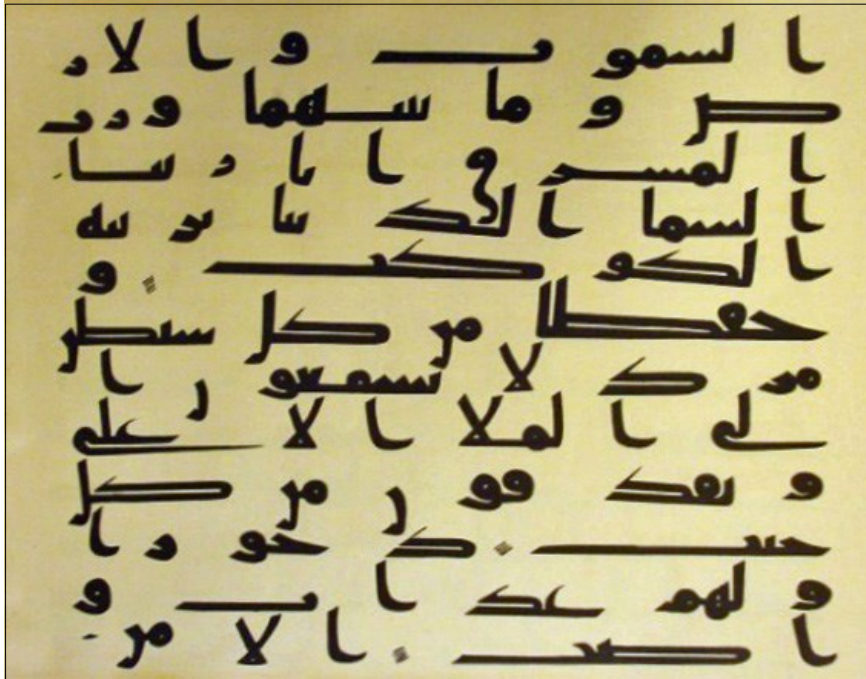 السموت والار
ض وما بينهما ورب
المشرق انا زينا
السما الدنيا بزينة
الكوكب و
حفظا من كل شيطن
مرد لا يسمعون ا
لى الملا الاعلى
ويقذفون من كل
جنب دحورا
ولهم عذاب و
اصب الا من